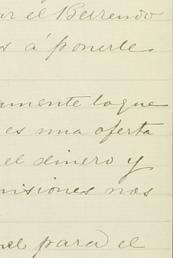 ar el Berrendo
s á ponerle
amente loque
es una oferta
el dinero y
misiones nos
el para el